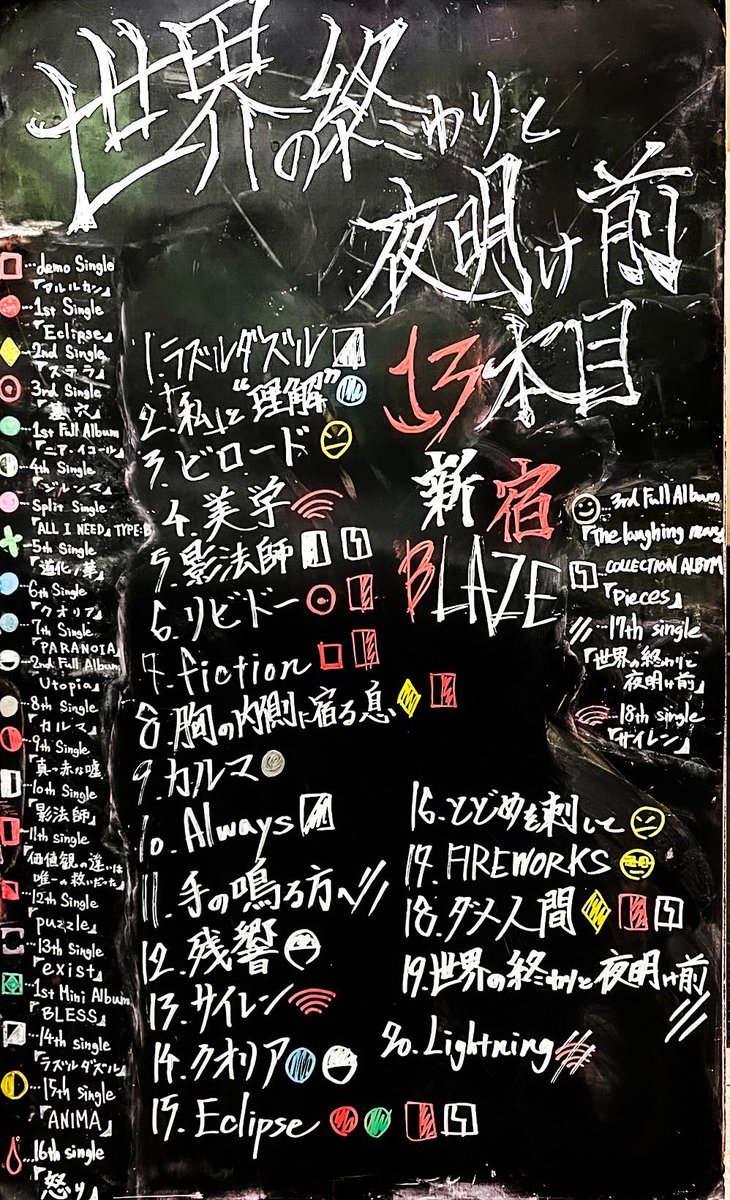 世界の終わりと
夜明け前
13本目
新宿
BLAZE
…demo Single
『アルルカン』
…1st Single
『Eclipse』
…2nd Single
『ステラ』
…3rd Single
『墓穴』
…1st Full Album
『ニア・イコール』
…4th Single
『ジレンマ』
…Split Single
『ALL I NEED』TYPE:B
…5th Single
『道化ノ華』
…6th Single
『クオリア』
…7th Single
『PARANOIA』
…2nd Full Album
『Utopia』
…8th Single
『カルマ』
…9th Single
『真っ赤な嘘』
…10th Single
『影法師』
…11th single
『価値観の違いは
唯一の救いだった』
…12th Single
『puzzle』
…13th Single
『exist』
…1st Mini Album
『BLESS』
…14th single
『ラズルダズル』
…15th single
『ANIMA』
…16th single
『怒り』
1.ラズルダズル
2.「私」と“理解”
3.ビロード
4.美学
5.影法師
6.リビドー
7.fiction
8.胸の内側に宿る息
9.カルマ
10.Always
11.手の鳴る方へ
12.残響
13.サイレン
14.クオリア
15.Eclipse
16.とどめを刺して
17.FIREWORKS
18.ダメ人間
19.世界の終わりと夜明け前
20.Lightning
…3rd Full Album
『The laughing man』
…COLLECTION ALBUM
『Pieces』
…17th single
『世界の終わりと
夜明け前』
…18th single
『サイレン』